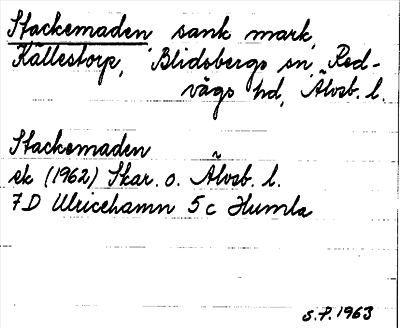 Stackemaden sank mark,
Källestorp, Blidsbergs sn, Red-
vägs hd, Älvsb. l.
Stackemaden
ek (1962) Skar. o. Älvsb. l.
7D Ulricehamn 5c Humla
S.P. 1963